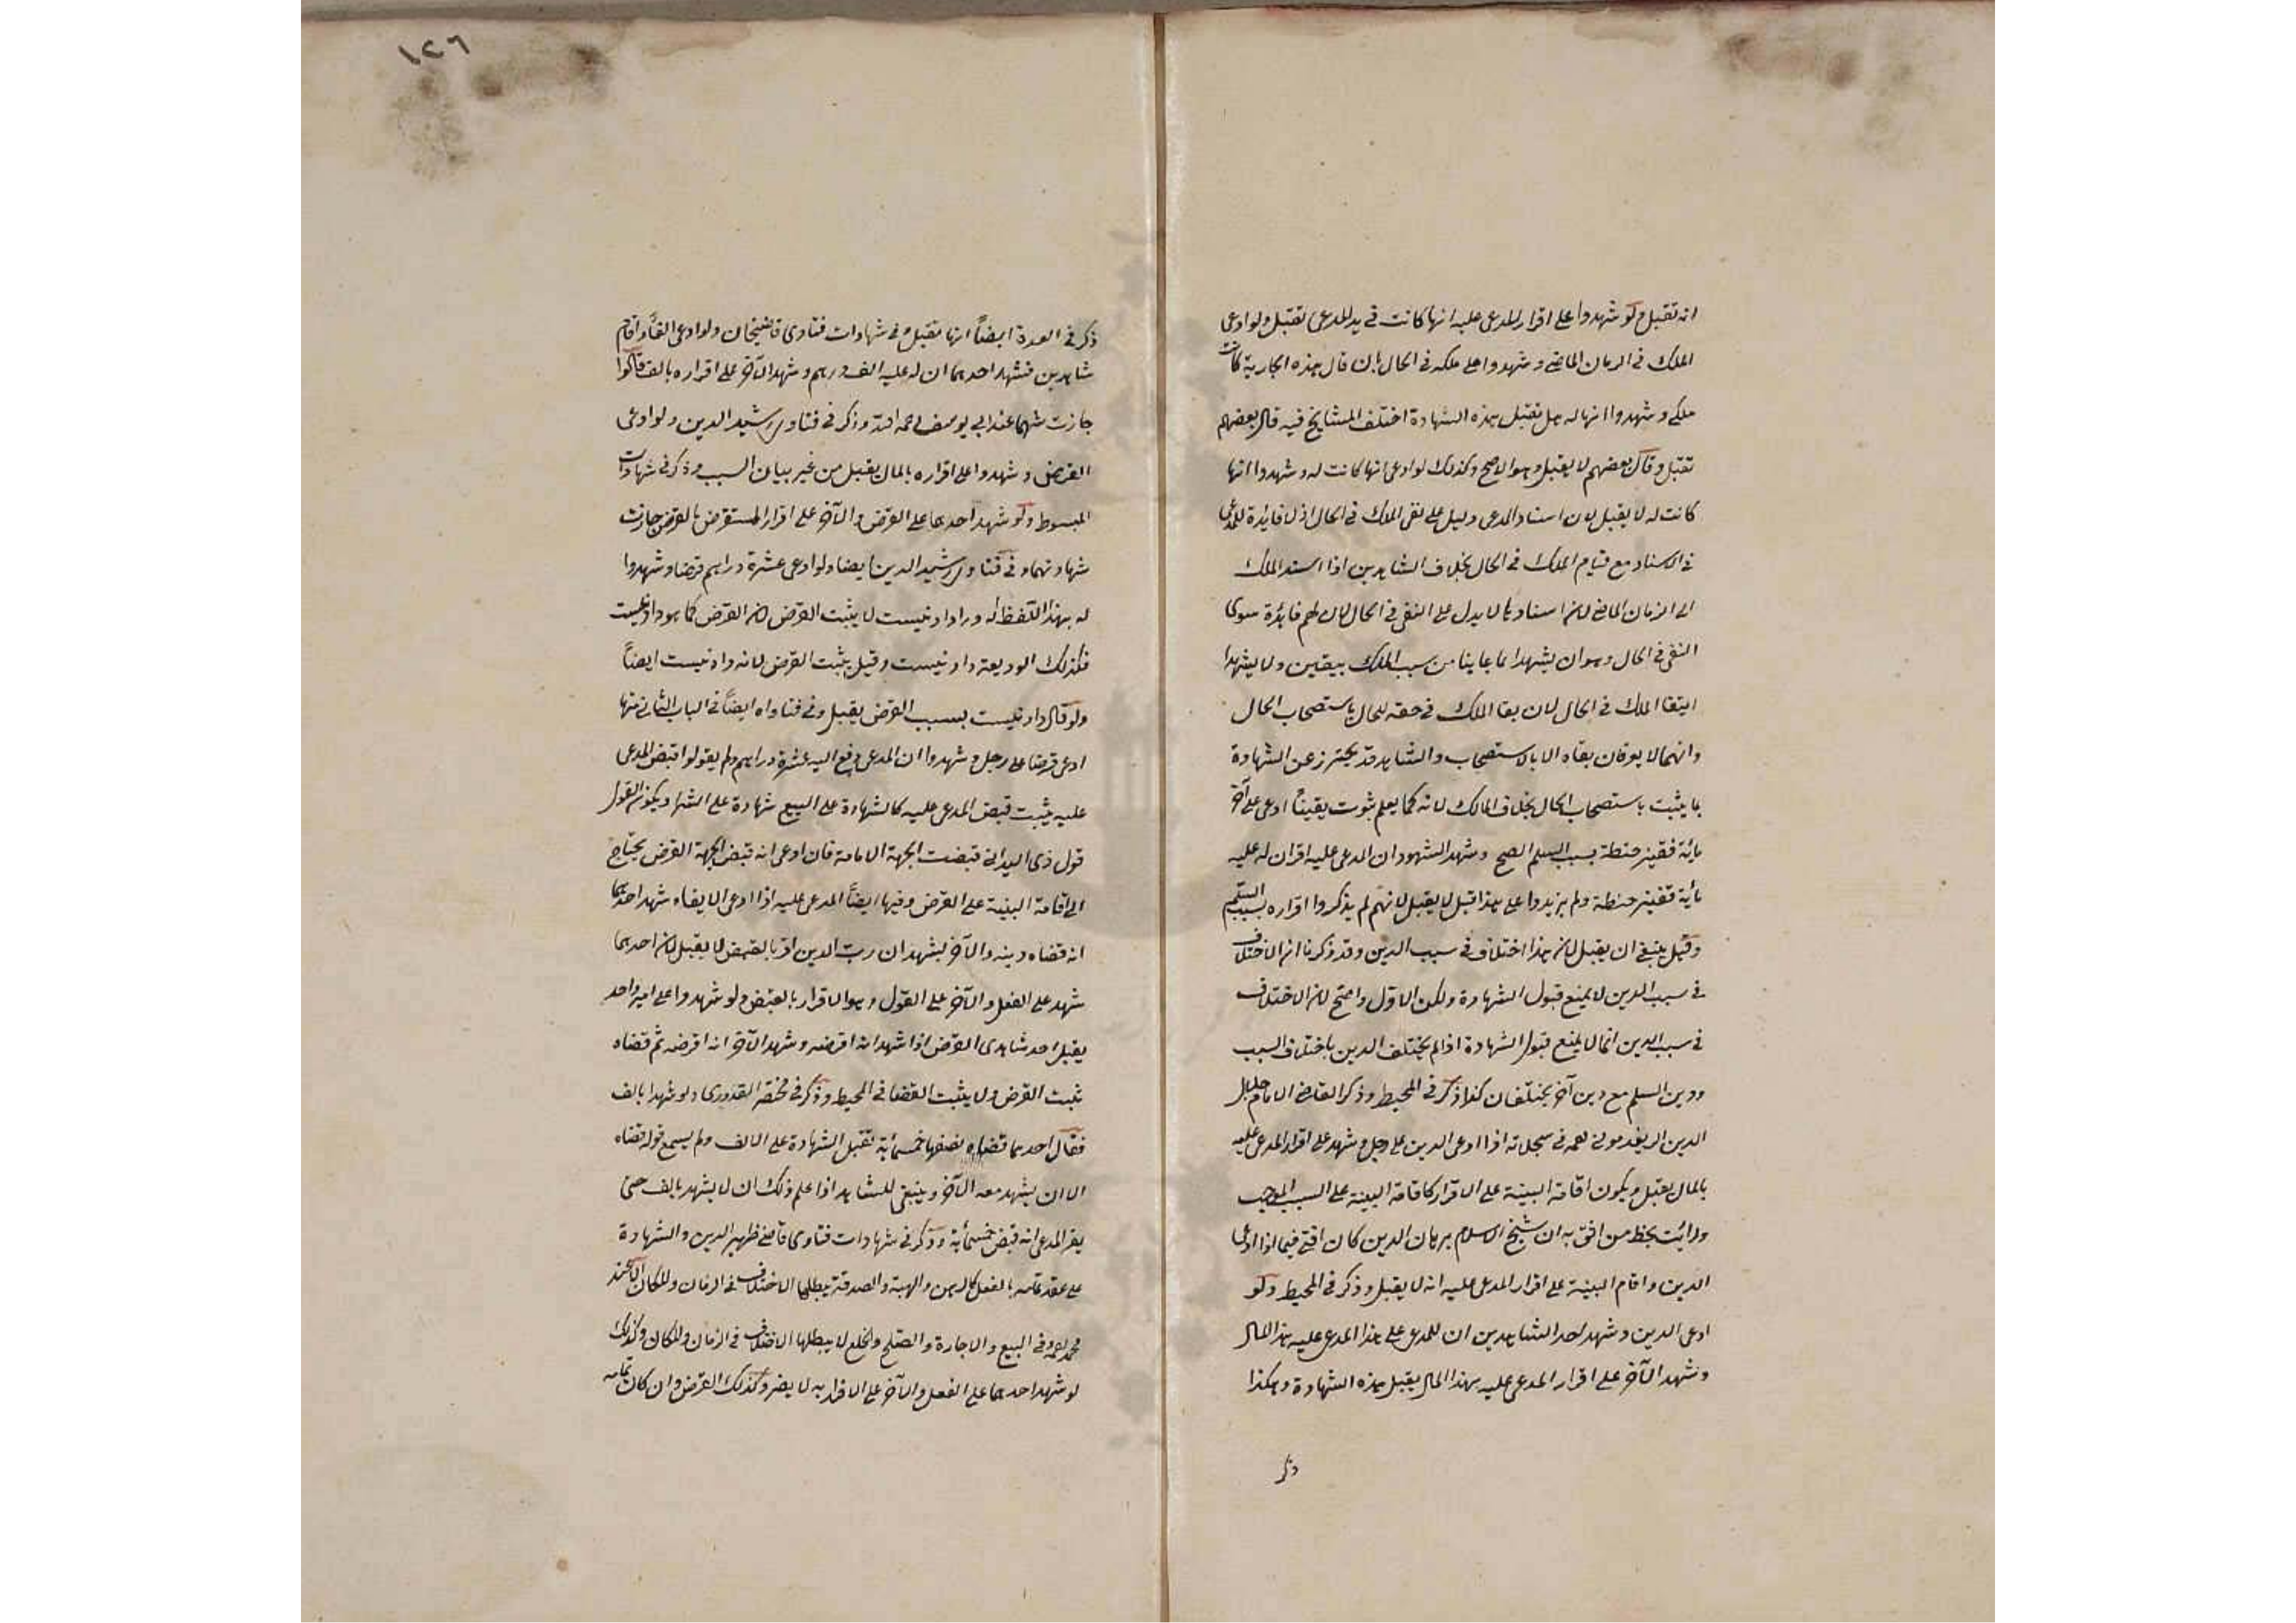 انه تقبل ولو شهدوا على اقرار المدعى عليه انها كانت في يد المدعى تقبل ولو ادعى
الملك في الزمان الماضي وشهدوا على ملكه في الحال بان قال هذه الجارية كانت
ملكي وشهدوا انها له هل تقبل هذه الشهادة اختلف المشايخ فيه قال بعضهم
تقبل وقال بعضهم لا يقبل وهو الاصح وكذلك لو ادعى انها كانت له وشهدوا انها
كانت له لا يقبل لان اسناد المدعى دليل على نفى الملك في الحال اذ لا فايدة للمدعى
في الاسناد مع قيام الملك في الحال بخلاف الشاهدين اذا اسند الملك
الى الزمان الماضي لان اسنادهما لا يدل على النفى في الحال لان لهم فائدة سوى
النفى في الحال وهو ان يشهدا بما عاينا من سبب الملك بيقين ولا يشهدا
ببقاء الملك في الحال لان بقا الملك في حقه للحال باستصحاب الحال
وانهما لا يعرفان بقاه الا بالاستصحاب والشاهد قد يحترز عن الشهادة
بما يثبت باستصحاب الحال بخلاف المالك لانه كما يعلم ثبوت يقيناً ادعى على آخر
مأية قفيز حنطة بسبب السلم الصح وشهد الشهود ان المدعى عليه اقر ان له عليه
مأية قفيز حنطة ولم يزيدوا على هذا قيل لا يقبل لانهم لم يذكروا اقراره بسبب السلم
وقيل ينبغي ان يقبل لان هذا اختلاف في سبب الدين وقد ذكرنا ان الاختلاف
في سبب الدين لا يمنع قبول الشهادة ولكن الاول واصح لان الاختلاف
في سبب الدين انما لا يمنع قبول الشهادة اذا لم يختلف الدين باختلاف السبب
ودين السلم مع دين آخر يختلفان كذا ذكر في المحيط وذكر القاضي الامام جلال
الدين الريغدموني رحمه في سجلاته اذا ادعى الدين على رجل وشهد على اقرار المدعى عليه
بالمال يقبل ويكون اقامة البينة على الاقرار كاقامة البينة على السبب الموجب
ورأيت بخط من اثق به ان شيخ الاسلام برهان الدين كان افتى فيما اذا ادعى
الدين واقام البينة على اقرار المدعى عليه انه لا يقبل وذكر في المحيط ولو
ادعى الدين وشهد احد الشاهدين ان للمدعى على هذا المدعى عليه هذا المال
وشهد الآخر على اقرار المدعى عليه بهذا المال يقبل هذه الشهادة وهكذا
ذكر
١٢٦
ذكر في العدة ايضاً انها تقبل في شهادات فتاوى قاضيخان ولو ادعى الفاً واقام
شاهدين فشهد احدهما ان له عليه الف درهم وشهد الآخر على اقراره بالف قالوا
جازت شهادتهما عند ابي يوسف رحمه الله وذكر في فتاوى رشيد الدين ولو ادعى
القرض وشهدوا على اقراره بالمال يقبل من غير بيان السبب وذكر في شهادات
المبسوط ولو شهد احدهما على القرض والآخر على اقرار المستقرض بالقرض جازت
شهادتهما وفي فتاوى رشيد الدين ايضا ولو ادعى عشرة دراهم قرضا وشهدوا
له بهذا اللفظ له ورا دادنيست لا يثبت القرض لان القرض كما هو دادنيست
فكذلك الوديعة دادنيست وقيل يثبت القرض لانه دادنيست ايضاً
ولو قال دادنيست بسبب القرض يقبل وفي فتاواه ايضاً في الباب الثاني منها
ادعى قرضا على رجل وشهدوا ان المدعى دفع اليه عشرة دراهم ولم يقولوا قبض المدعى
عليه يثبت قبض المدعى عليه كالشهادة على البيع شهادة على الشرا ويكون القول
قول ذى اليد اني قبضت بجهة الامانة فان ادعى انه قبض بجهة القرض يحتاج
الى اقامة البينة على القرض وفيها ايضاً المدعى عليه اذا ادعى الايفاء شهد احدهما
انه قضاه دينه والآخر يشهد ان رب الدين اقر بالقبض لا يقبل لان احدهما
شهد على الفعل والآخر على القول وهو الاقرار بالقبض ولو شهدوا على امر واحد
يقبل احد شاهدى القرض اذا شهد انه اقرضه وشهد الآخر انه اقرضه ثم قضاه
ثبت القرض ولا يثبت القضا في المحيط وذكر في مختصر القدورى ولو شهدا بالف
فقال احدهما قضاه نصفها خمسمأية تقبل الشهادة على الالف ولم يسمع قوله قضاه
الا ان يشهد معه الآخر وينبغي للشاهد اذا علم ذلك ان لا يشهد بالف حتى
يقر المدعى انه قبض خمسمأية وذكر في شهادات فتاوى قاضي ظهير الدين والشهادة
على عقد تمامه بالفعل كالرهن والهبة والصدقة يبطلها الاختلاف في الزمان والمكان الا عند
محمد رحمه وفي البيع والاجارة والصلح والخلع لا يبطلها الاختلاف في الزمان والمكان وكذلك
لو شهد احدهما على الفعل والآخر على الاقرار به لا يضر وكذلك القرض وان كان تمامه